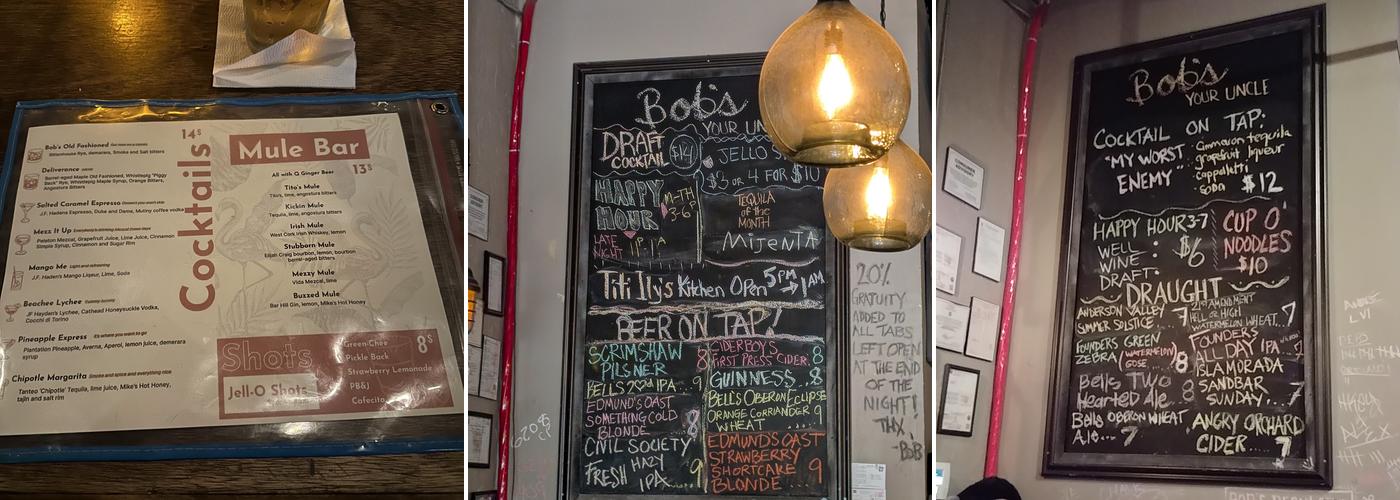 Cocktails
14$
Bob's Old Fashioned
Rittenhouse Rye, demerara, Smoke and Salt bitters
Deliverance
Barrel-aged Maple Old Fashioned, Whistlepig "Piggy
Back" Rye, Whistlepig Maple Syrup, Orange Bitters,
Angostura Bitters
Salted Caramel Espresso
J.F. Hadens Espresso, Duke and Dame, Mutiny coffee vodka
Mezz It Up
Peloton Mezcal, Grapefruit Juice, Lime Juice, Cinnamon
Simple Syrup, Cinnamon and Sugar Rim
Mango Me Light and refreshing
J.F. Haden's Mango Liqeur, Lime, Soda
Beachee Lychee
JF Hayden's Lychee, Cathead Honeysuckle Vodka,
Cocchi di Torino
Pineapple Express It's where you want to go
Plantation Pineapple, Averna, Aperol, lemon juice, demarara
syrup
Chipotle Margarita Smoke and spice and everything nice
Tanteo 'Chipotle' Tequila, lime juice, Mike's Hot Honey,
tajin and salt rim
Mule Bar
13$
All with Q Ginger Beer
Tito's Mule
Titos, lime, angostura bitters
Kickin Mule
Tequila, lime, angostura bitters
Irish Mule
West Cork Irish Whiskey, lemon
Stubborn Mule
Elijah Craig bourbon, lemon, bourbon
barrel-aged bitters
Mezzy Mule
Vida Mezcal, lime
Buzzed Mule
Bar Hill Gin, lemon, Mike's Hot Honey
Shots
8$
Jell-O Shots
Green Chee
Pickle Back
Strawberry Lemonade
PB&J
Cafecito
Bob's
YOUR UN
DRAFT
COCKTAIL
$14
JELLO S
$3 OR 4 FOR $10
HAPPY
HOUR
M-TH
3-6P
LATE
NIGHT
11P-1A
TEQUILA
OF THE
MONTH
MIJENTA
Titi Ily's Kitchen Open 5PM → 1AM
BEER ON TAP!
SCRIMSHAW
PILSNER 8
BELL'S 2♡d IPA... 9
EDMUND'S OAST
SOMETHING COLD
BLONDE 8
CIVIL SOCIETY
FRESH HAZY
IPA... 9
CIDERBOYS
FIRST PRESS CIDER 8
GUINNESS... 8
BELL'S OBERON ECLIPSE
ORANGE CORRIANDER 9
WHEAT ....
EDMUNDS OAST
STRAWBERRY
SHORTCAKE
BLONDE... 9
20%
GRATUITY
ADDED TO
ALL TABS
LEFT OPEN
AT THE END
OF THE
NIGHT!
THX!
-BoB
Bob's
YOUR UNCLE
COCKTAIL ON TAP:
"MY WORST
ENEMY"
Cimmaron tequila
grapefruit liqueur
cappalletti
Soda $12
HAPPY HOUR 3-7
WELL
WINE
DRAFT
: $6
CUP O'
NOODLES
$10
DRAUGHT
ANDERSON VALLEY
SUMMER SOLSTICE 7
FOUNDERS GREEN
ZEBRA (WATERMELON
GOSE 8
Bells Two
Hearted Ale 8
Bells OBERON WHEAT
Ale... 7
21ST AMENDMENT
HELL OR HIGH
WATERMELON WHEAT... 7
FOUNDERS
ALL DAY IPA...
ISLAMORADA
SANDBAR
SUNDAY... 7
ANGRY ORCHARD
CIDER.... 7